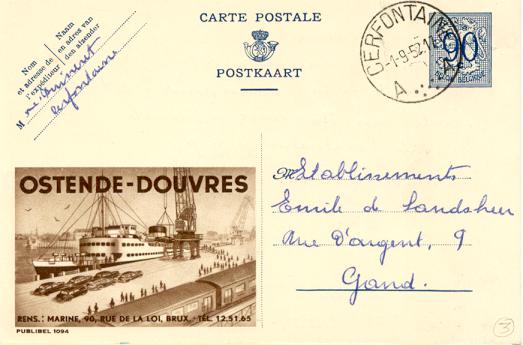 CARTE POSTALE
POSTKAART
Nom
et adresse de
l'expéditeur
Naam
en adres van
den afzender
M
Cerfontaine
CERFONTAINE
1-9-52
A
90
BELGIQUE
OSTENDE-DOUVRES
RENS.: MARINE, 90, RUE DE LA LOI, BRUX. - TÉL. 12.51.65
PUBLIBEL 1094
Etablissements
Emile de Landsheer
Rue d'argent, 9
Gand.
3